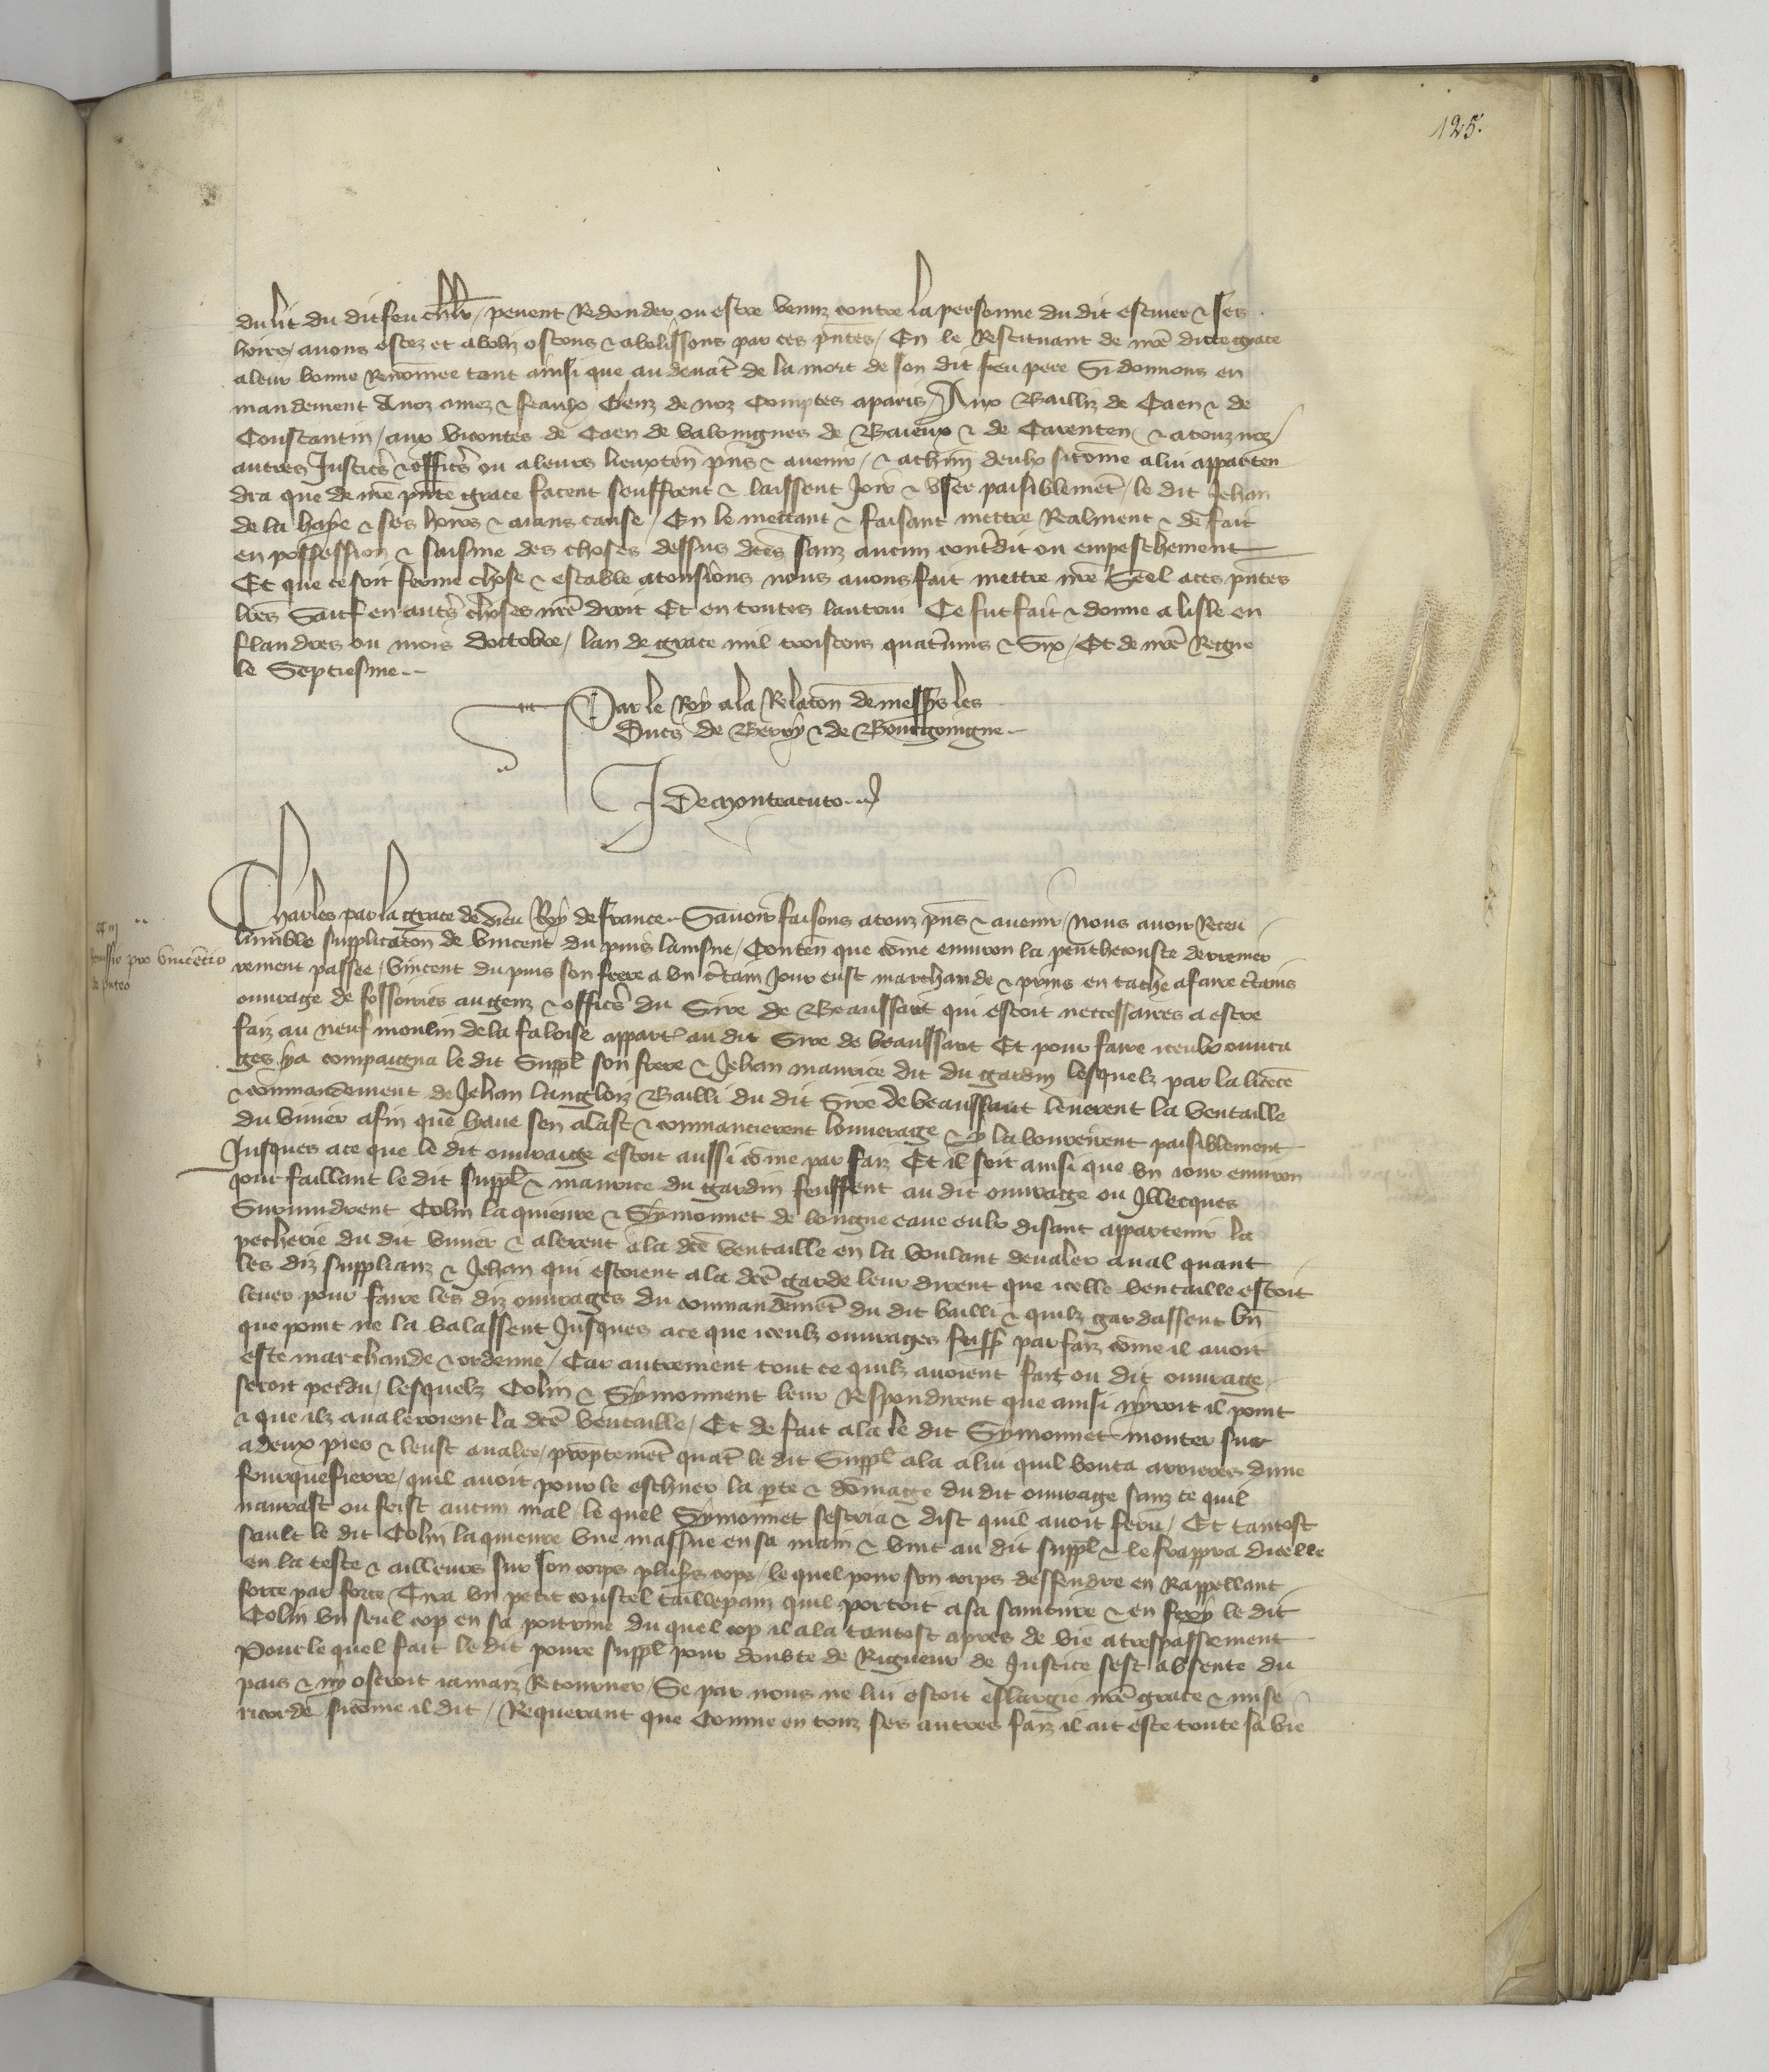 125.
du lit du dit feu chlr / peuent Redonder ou estre venuz contre la personne du dit escuier & ses
hoires / auons ostez et aboliz ostons & abolissons par ces pntes / En le Restituant de nre dicte grace
a leur bonne Renomee tout ainsi que au deuat de la mort de son dit feu pere Si donnons en
mandement A noz amez & feaulx Genz de noz Comptes a paris / Aux Bailliz de Caen & de
Constantin / aux vicontes de Caen de valoingnes de Baieux & de Carenten & a touz noz /
autres Justics & offics ou a leurs lieuxten pns & auenir / & a chun deulx sicome a lui apparten
dra que de nre pnte grace facent seuffrent & laissent Joir & vser paisiblemet / le dit Jehan
de la haye & ses hoirs & aians cause / En le mettant & faisant mettre Realment & de fait
en possession & saisine des choses dessus dces sanz aucun contdit ou empeschement
Et que ce soit ferme chose & estable a tousiours nous auons fait mettre nre Seel a ces pntes
lres Sauf en auts choses nre droit Et en toutes lautrui Ce fut fait & donne a lisle en
flandres ou mois doctobre / lan de grace mil troiscens quatvins & Six / Et de nre Regne
le Septiesme
Par le Roy a la Relacon de messrs les
Ducs de Berry & de Bourgoingne
J De monteacuto
Charles par la grace de dieu Roy de france Sauoir faisons a touz pns & auenir / nous auoir Receu
Remissio pro vincencio
de puteo
lumble supplicaton de vincent du puis lainsne / Conten que come enuiron la penthecouste derrenier
rement passee / vincent du puis son frere a vn ctain Jour eust marchande & prins en tache a faire ctains
ouurage de fossories au genz & offics du Sire de Beaussart qui estoit neccessaires a estre
faiz au neuf moulin de la faloise appart au dit Sire de beaussart Et pour faire iceulx ouura
ges / y a compaigna le dit Suppl son frere & Jehan maurice dit du gardin lesquelz par la licece
& commandement de Jehan langloiz Bailli du dit Sire de beaussart leuerent la ventaille
du viuier afin que lyaue sen alast & commancierent louuerage & y labourerent paisiblement
Jusques a ce que le dit ouuraige estoit aussi come par faiz Et il soit ainsi que vn iour enuiron
jour faillant le dit suppl & maurice du gardin feussent au dit ouurage ou Illecques
Suruindrent Colin la quieure & Symonnet de longue eaue eulx disant appartenir la
pecherie du dit viuier & alerent a la dce ventaille en la voulant deualer aual quant
les diz supplianz & Jehan qui estoient a la dce garde leur dirent que icelle ventaille estoit
leuer pour faire les diz ouurages du commandemet du dit bailli & quilz gardassent bn
que point ne la valassent Jusques a ce que iceulz ouurages feuss parfaiz come il auoit
este marchande & ordenne / Car autrement tout ce quilz auoient fait ou dit ouurage
seroit perdu / lesquelz Colin & Symonnent leur Respondirent que ainsi nyroit il point
& que ilz aualeroient la dce ventaille / Et de fait ala le dit Symonnet monter sur
a deux pies & leust aualee / promptemet quat le dit Suppl ala a lui quil bouta arrieres dune
fourquefierre / quil auoit pour le eschuer la pte & domage du dit ouurage sanz ce quil
naurast ou feist aucun mal / le quel Symonnet sescria & dist quil auoit feru / Et tantost
sault le dit Colin laquieure vne massue en sa main & vint au dit suppl & le frappra dicelle
en la teste & ailleurs sur son corps plusrs cops / le quel pour son corps deffendre en Rappellant
force par force / Tira vn petit coustel taillepain quil portoit a sa sainture & en fery le dit
Colin vn seul cop en sa poitrine du quel cop il ala tantost apres de vie a trespassement
Pour le quel fait le dit poure suppl pour doubte de Rigueur de Justice sest absente du
pais & ny oseroit iamaiz Retourner / Se par nous ne lui estoit eslargie nre grace & mise
ricorde sicome il dit / Requerant que Comme en touz ses autres faiz il ait este toute sa vie